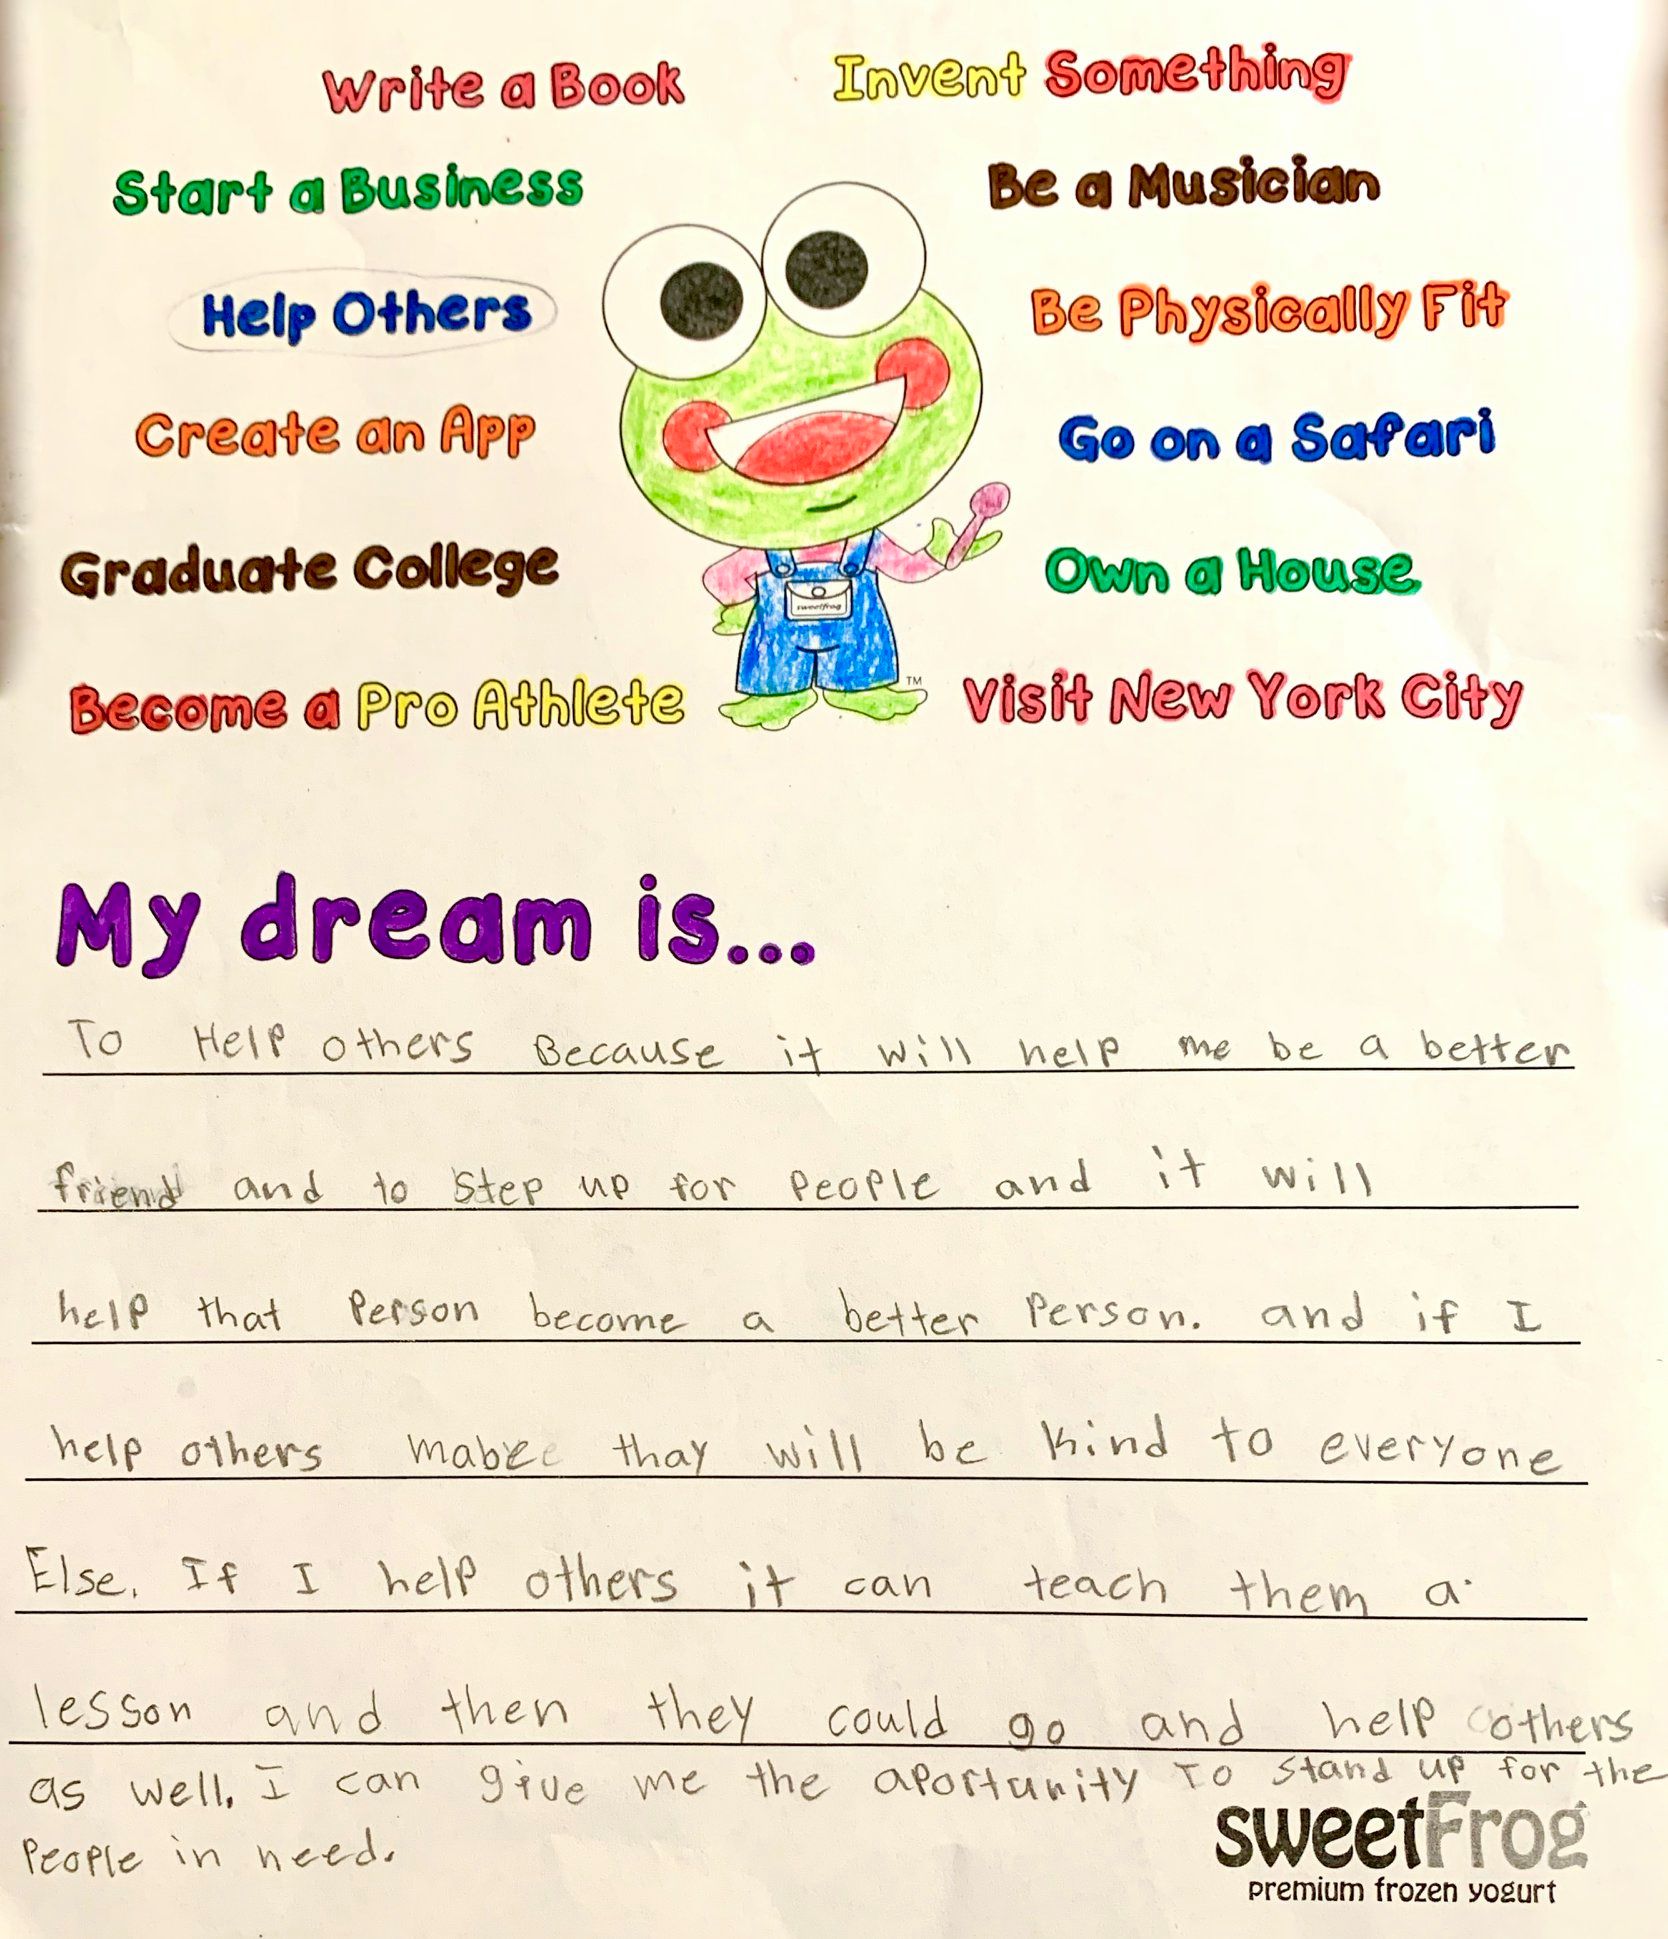 Write a Book
Invent Something
Start a Business
Be a Musician
Help Others
Be Physically Fit
Create an App
Go on a Safari
sweetfrog
Graduate College
Own a House
Become a Pro Athlete
TM
Visit New York City
My dream is...
To Help others Because it will help me be a better
friend and to step up for people and it will
help that Person become a better Person. and if I
help others thay will be kind to everyone
Else. If I help others it can teach them a
lesson and then they could go and help others
as well. I can give me the aportunity To stand up for the
People in need.
sweetFrog
premium frozen yogurt